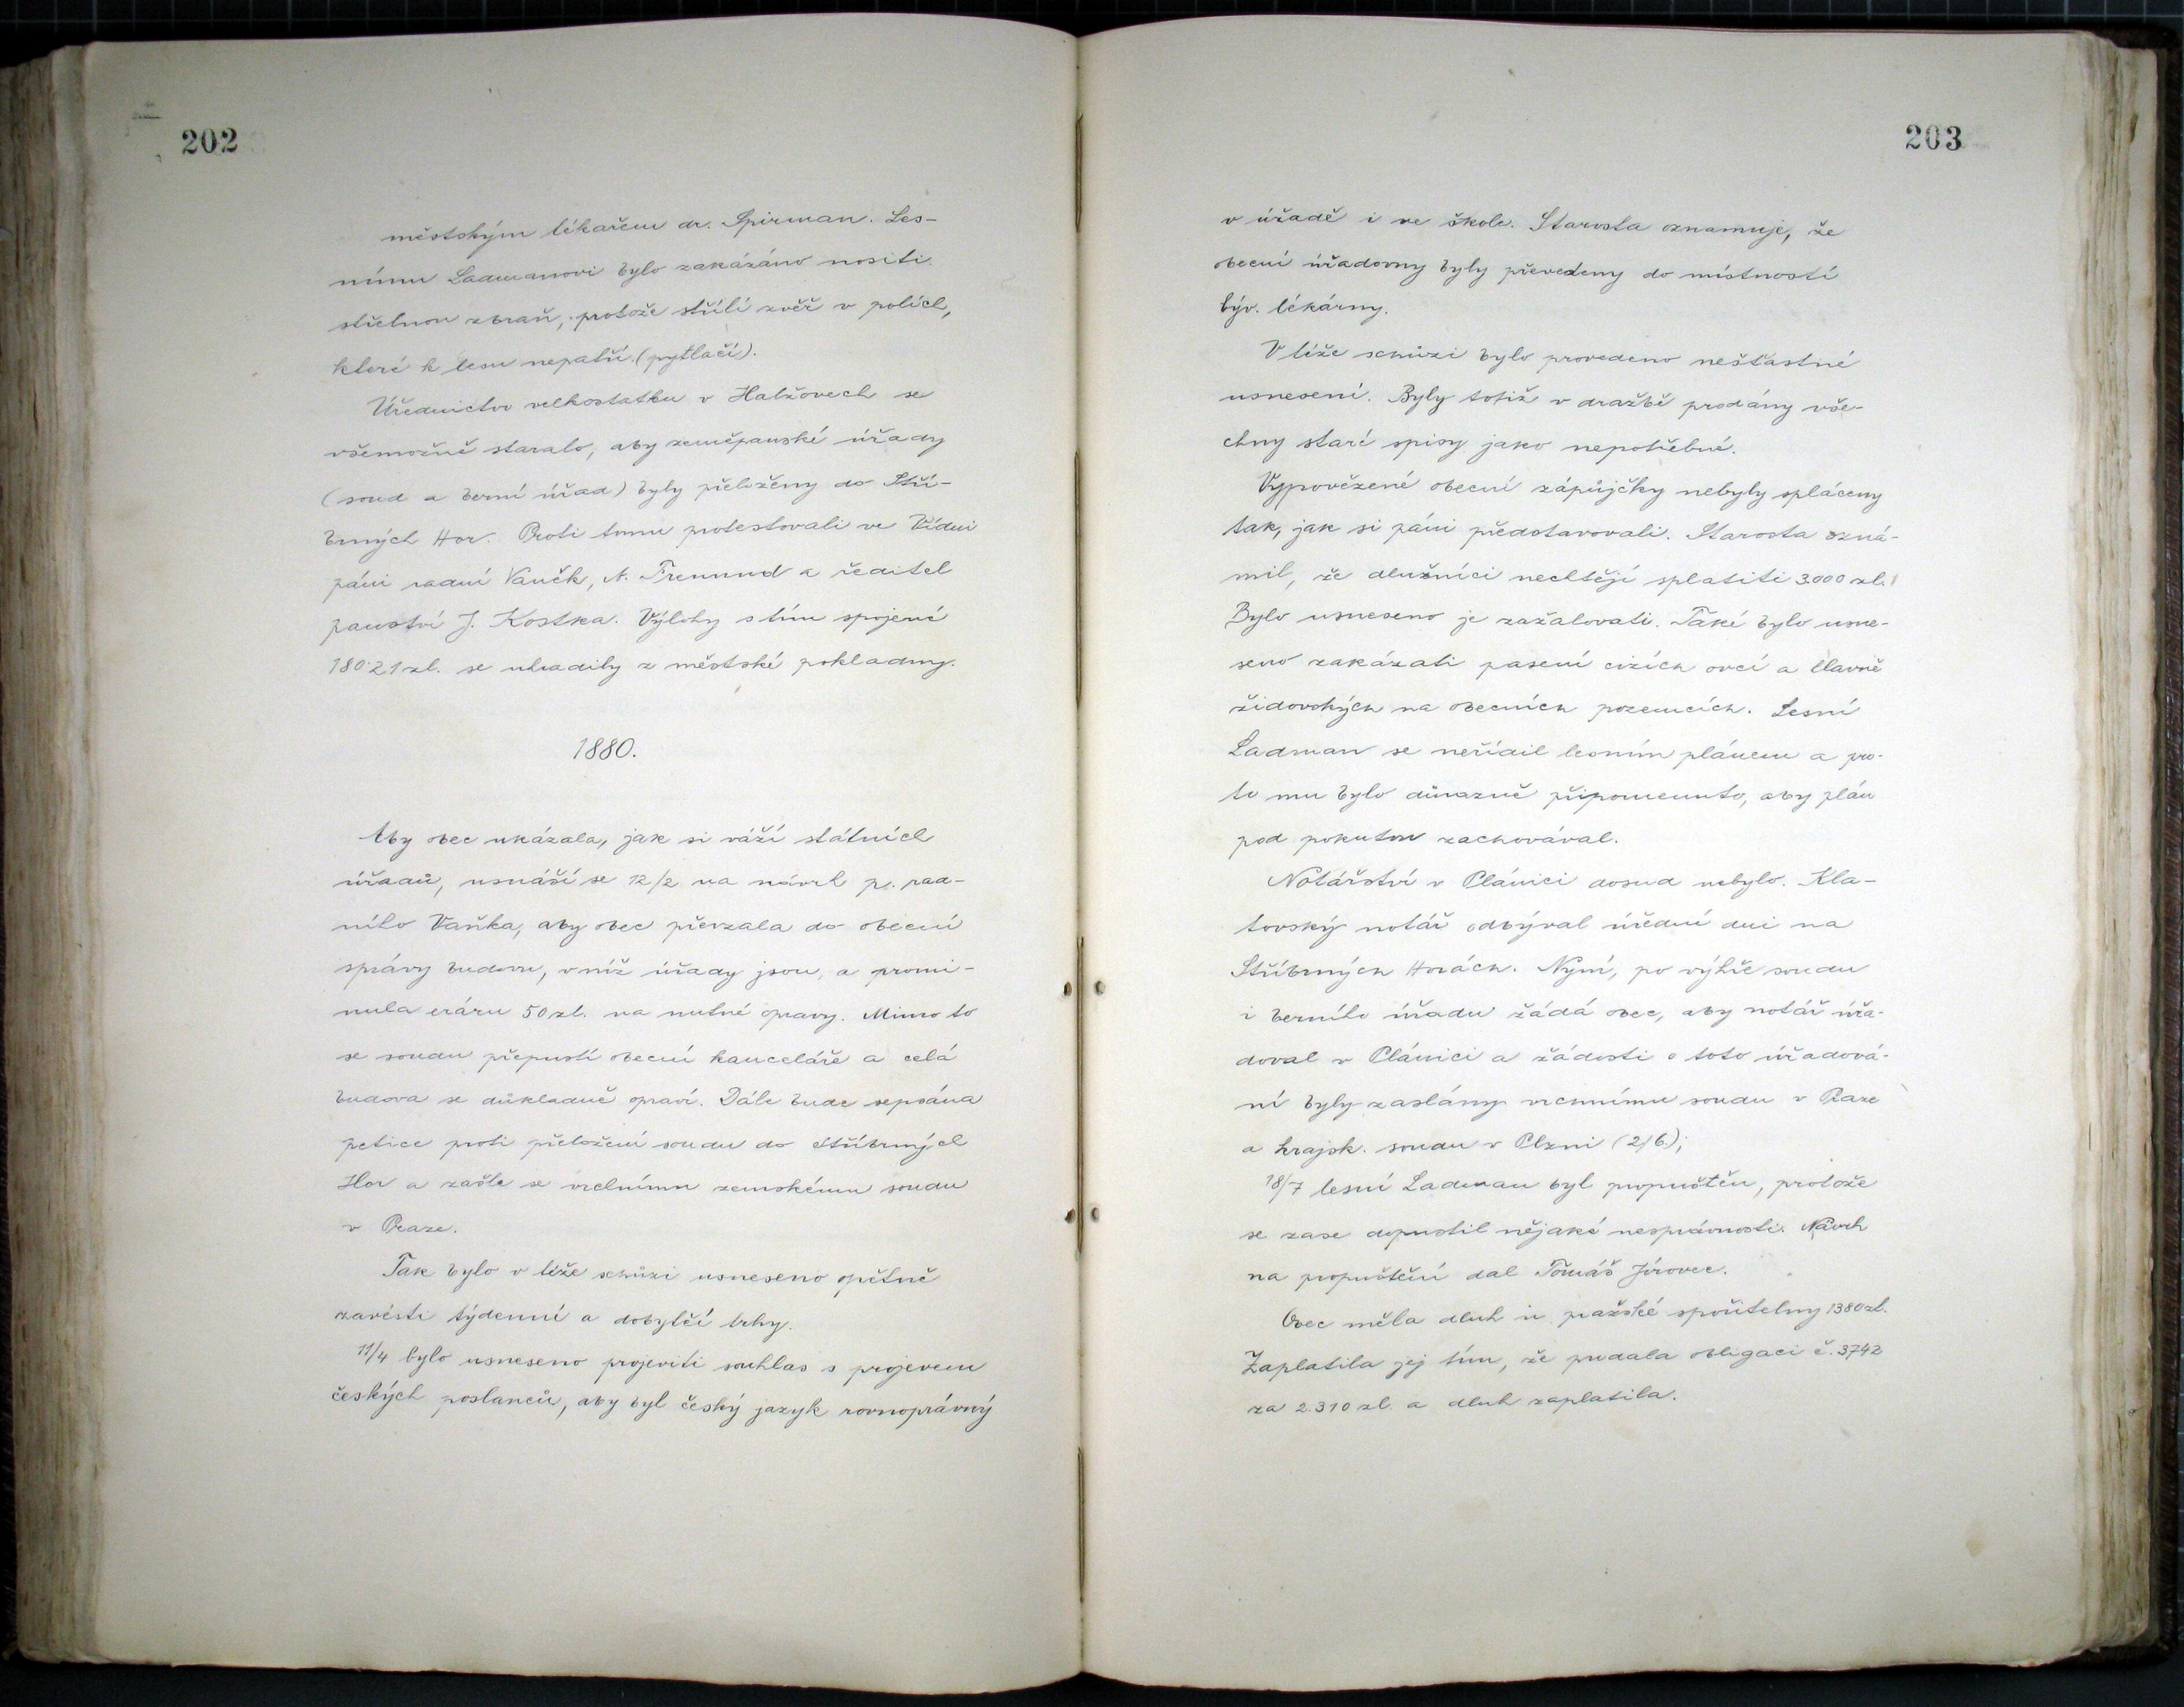 202
městským lékařem dr. Spirman. Les-
nímu Ladmanovi bylo zakázáno nositi
střelnou zbraň, protože střílí zvěř v polích,
které k lesu nepatří. (pytlačí).
Úřednictvo velkostatku v Habžovech se
všemožně staralo, aby zeměpanské úřady
(soud a berní úřad) byly přeloženy do Stří-
brných Hor. Proti tomu protestovali ve Vídni
páni radní Vaněk, A. Freunnd a ředitel
panství J. Kostka. Výlohy s tím spojené
180·21 zl. se uhradily z městské pokladny.
1880.
Aby obec ukázala, jak si váží státních
úřadů, usnáší se 12/2 na návrh p. rad-
ního Vaňka, aby obec převzala do obecní
správy budovu, v níž úřady jsou, a promi-
nula eráru 50 zl. na nutné opravy. Mimo to
se soudu přepustí obecní kanceláře a celá
budova se důkladně opraví. Dále bude sepsána
petice proti přeložení soudu do Stříbrných
Hor a zašle se vrchnímu zemskému soudu
v Praze.
Tak bylo v téže schůzi usneseno opětně
zavésti týdenní a dobytčí trhy.
11/4 bylo usneseno projeviti souhlas s projevem
českých poslanců, aby byl český jazyk rovnoprávný
203
v úřadě i ve škole. Starosta oznamuje, že
obecní úřadovny byly převedeny do místností
býv. lékárny.
V téže schůzi bylo provedeno nešťastné
usnesení. Byly totiž v dražbě prodány vše-
chny staré spisy jako nepotřebné.
Vypovězené obecní zápůjčky nebyly spláceny
tak, jak si páni představovali. Starosta ozná-
mil, že dlužníci nechtějí splatiti 3.000 zl.
Bylo usneseno je zažalovati. Také bylo usne-
seno zakázati pasení cizích ovcí a hlavně
židovských na obecních pozemcích. Lesní
Ladman se neřídil lesním plánem a pro-
to mu bylo důrazně připomenuto, aby plán
pod pokutou zachovával.
Notářství v Plánici dosud nebylo. Kla-
tovský notář odbýval úřední dni na
Stříbrných Horách. Nyní, po výhře soudu
i berního úřadu žádá obec, aby notář úřa-
doval v Plánici a žádosti o toto úřadová-
ní byly zaslány vrchnímu soudu v Praze
a krajsk. soudu v Plzni (2/6.);
18/7 lesní Ladman byl propuštěn, protože
se zase dopustil nějaké nesprávnosti. Návrh
na propuštění dal Tomáš Jírovec.
Obec měla dluh u pražské spořitelny 1380 zl.
Zaplatila jej tím, že prodala obligaci č. 3742
za 2.310 zl. a dluh zaplatila.